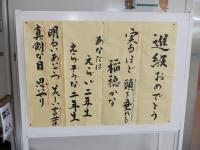 進級おめでとう
実るほど頭を垂れる
稲穂かな
あなたは
えらい二年生
えらそうな二年生
明るいあいさつ 美しい言葉
真剣な目 思いやり